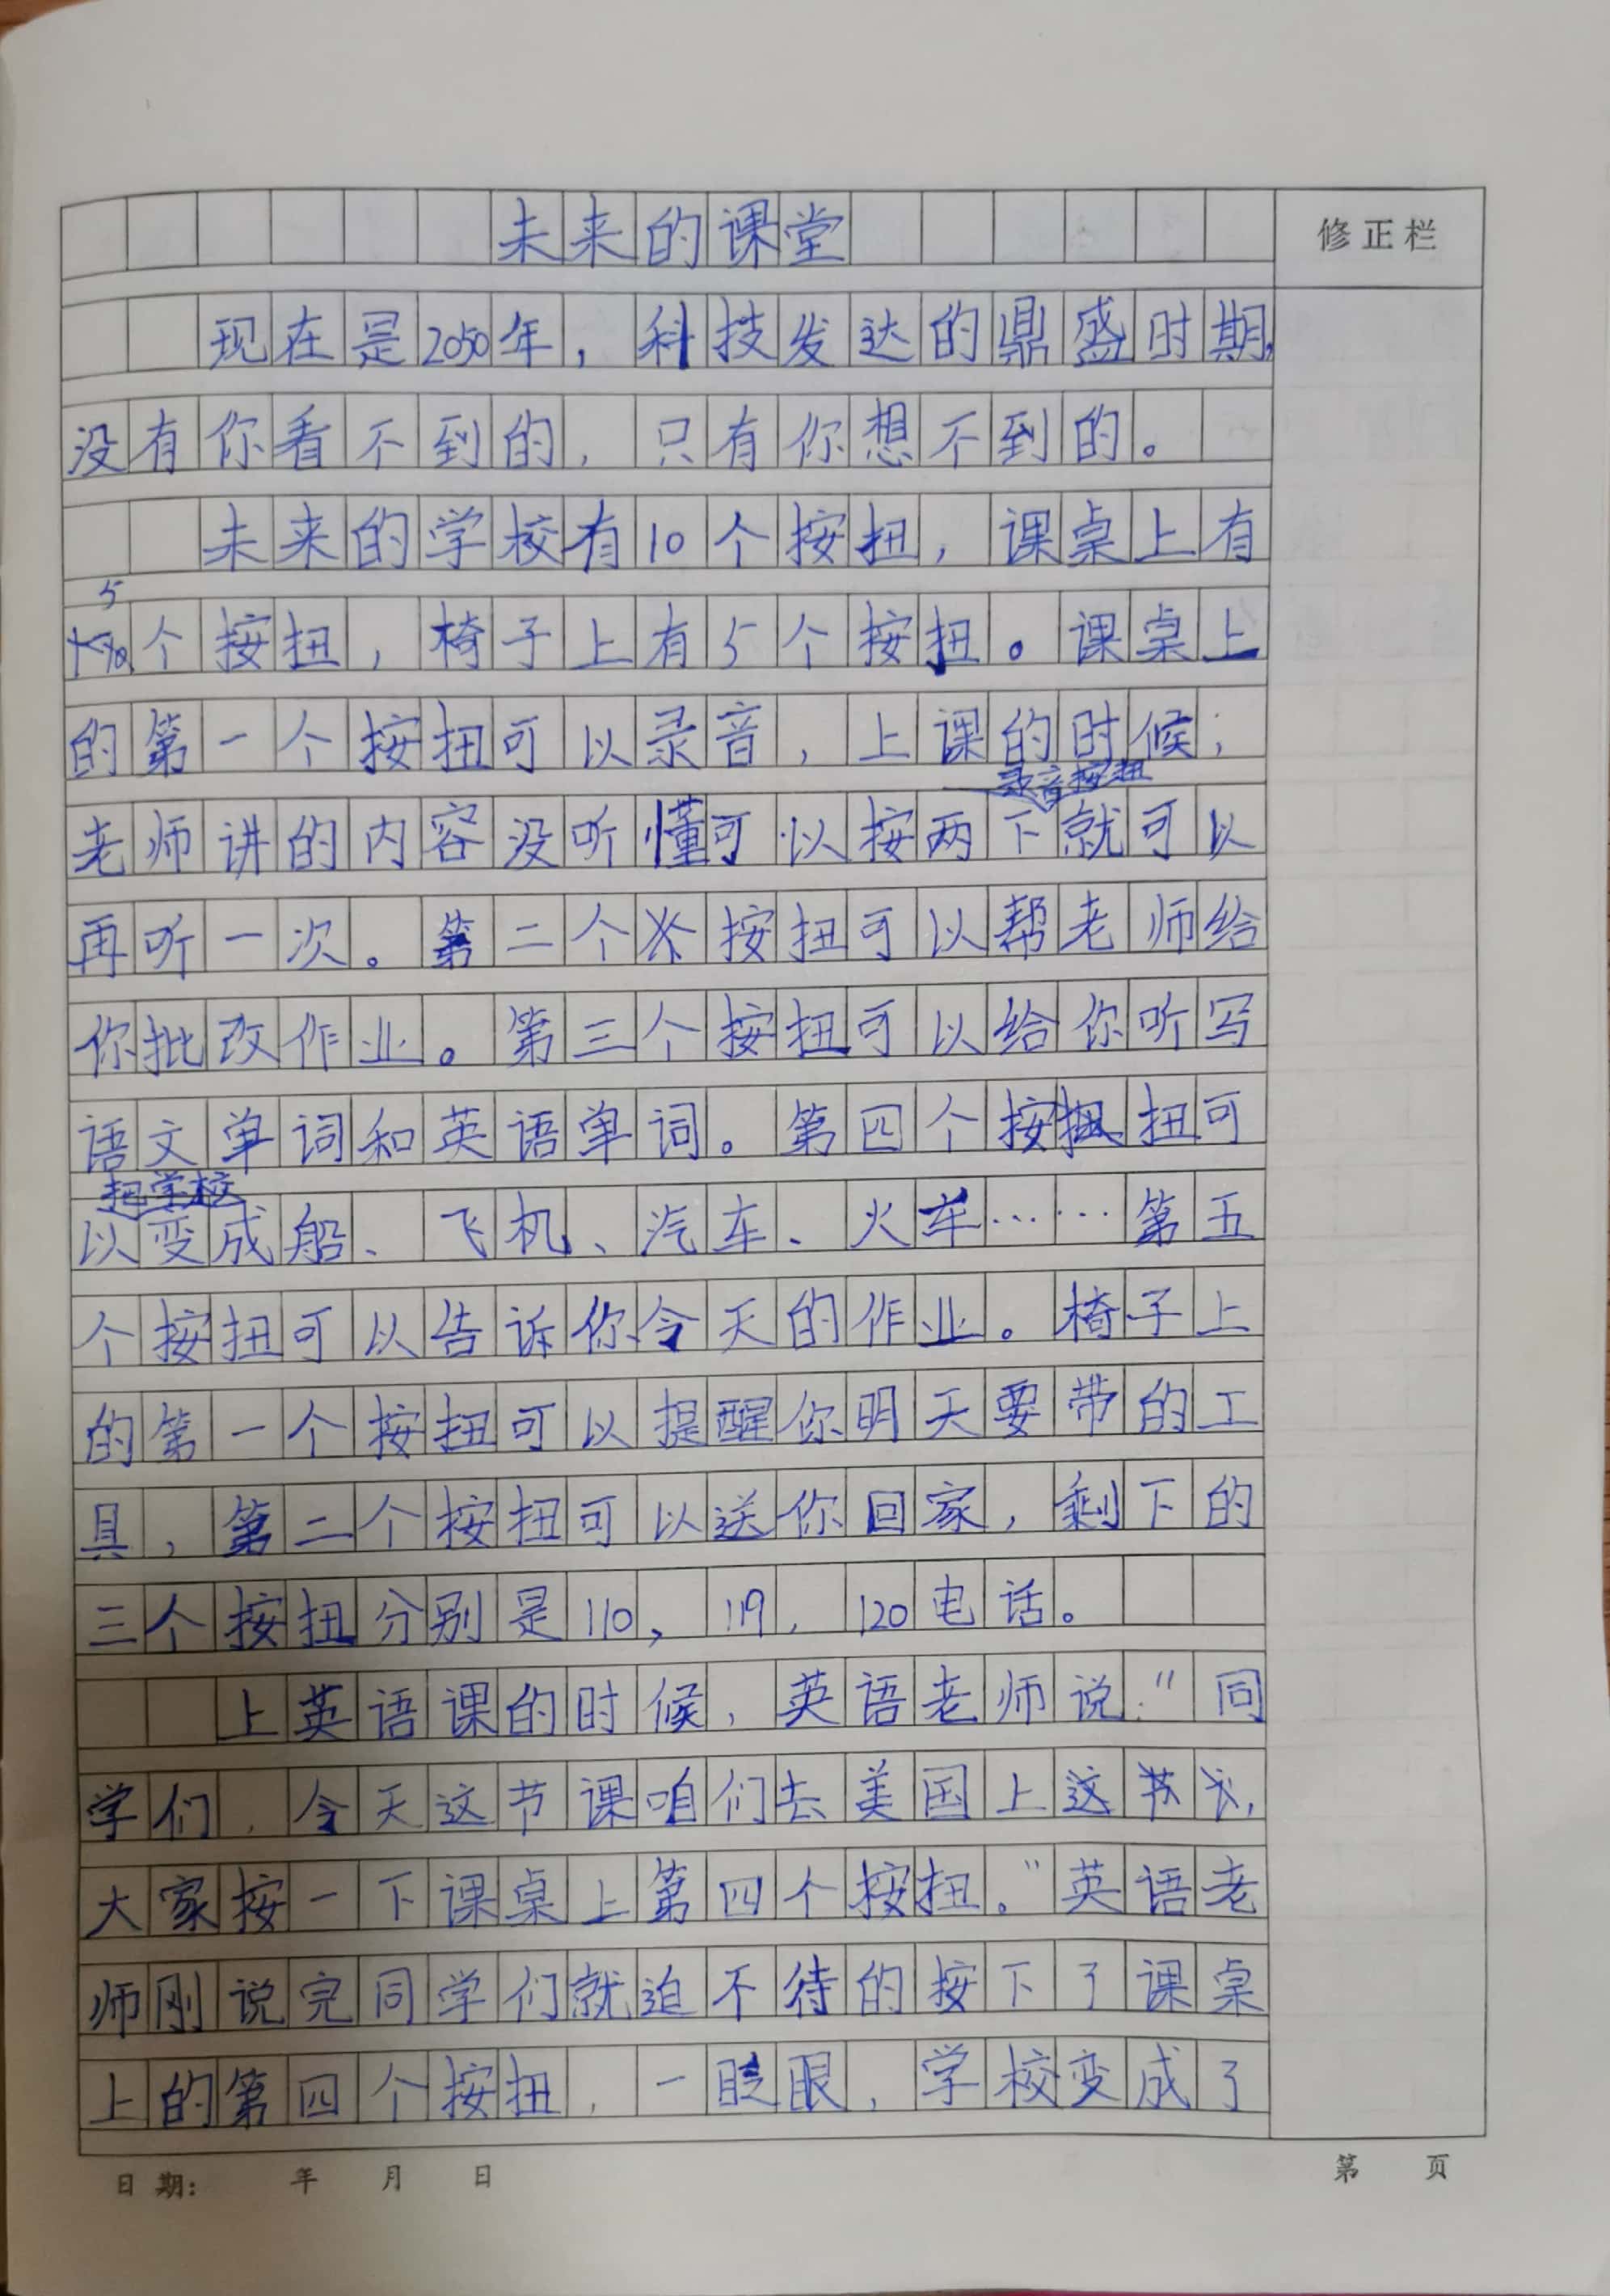 未来的课堂
修正栏
现在是2050年，科技发达的鼎盛时期，
没有你看不到的，只有你想不到的。
未来的学校有10个按扭，课桌上有
5
个按扭，椅子上有5个按扭。课桌上
的第一个按扭可以录音，上课的时候，
录音按扭
老师讲的内容没听懂可以按两下就可以
再听一次。第二个按扭可以帮老师给
你批改作业。第三个按扭可以给你听写
语文单词和英语单词。第四个按扭可
把学校
以变成船、飞机、汽车、火车……第五
个按扭可以告诉你今天的作业。椅子上
的第一个按扭可以提醒你明天要带的工
具，第二个按扭可以送你回家，剩下的
三个按扭分别是110，119，120电话。
上英语课的时候，英语老师说：“同
学们，今天这节课咱们去美国上这节
大家按一下课桌上第四个按扭。”英语老
师刚说完同学们就迫不待的按下了课桌
上的第四个按扭，一眨眼，学校变成了
日期： 年 月 日
第 页